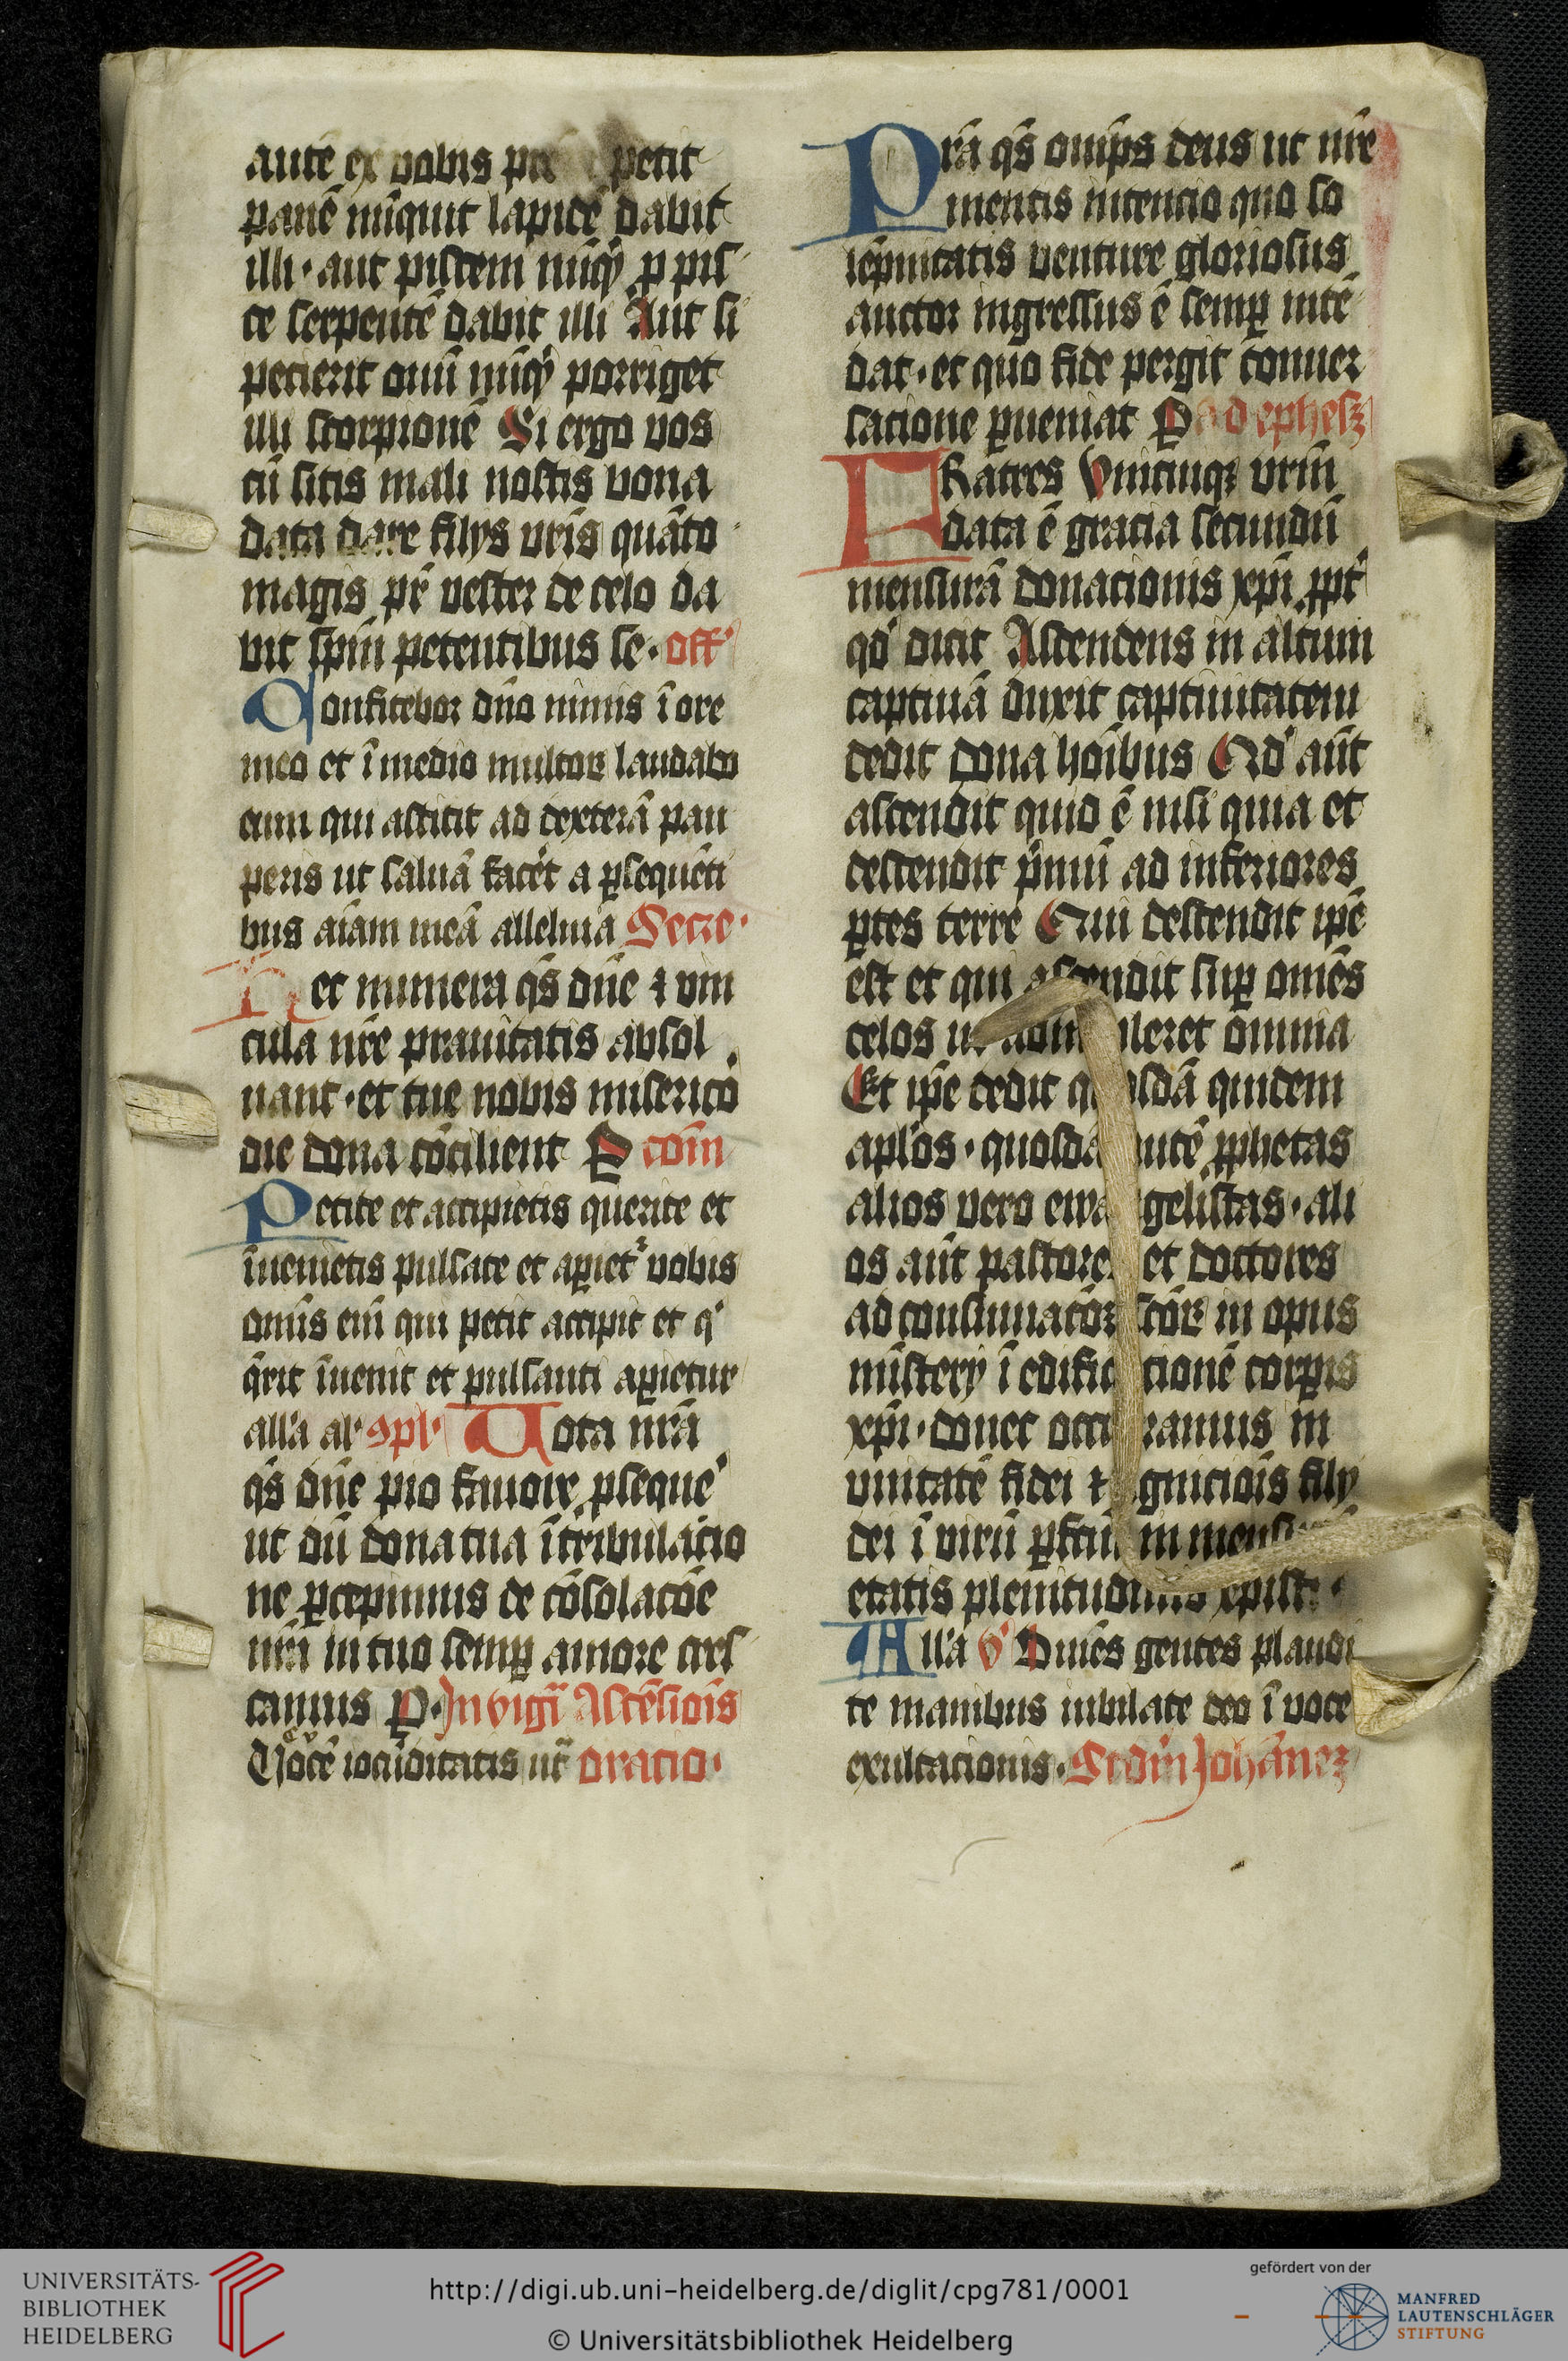 autē ex vobis petit
panē nūquit lapidē dabit
illi · aut piscem nūq̄ p pis
ce serpentē dabit illi Aut si
pecierit ouū nūq̄ porriget
illi scorpionē Si ergo vos
cū sitis mali nostis bona
data dare filijs vr̄is quāto
magis pr̄ vester de celo da
bit sp̄m petentibus se · off
Confitebor dn̄o nimis ī ore
meo et ī medio multoꝝ laudabo
eum qui astitit ad dexterā pau
peris ut saluā facēt a ꝑsequēti
bus aīam meā alleluia Secre ·
Hec munera qs̄ dn̄e ⁊ vin
cula nr̄e prauitatis absol
uant · et tue nobis misericō
die dona cōcilient P com̄
Petite et accipietis querite et
īuenietis pulsate et aꝑiet᷑ vobis
om̄is eni᷑ qui petit accipit et q
q̄rit īuenit et pulsanti aꝑietur
all'a al' 9pl' Vota nr̄a
qs̄ dn̄e pio fauore ꝓseque
ut dū dona tua ī tribulacio
ne ꝑcepimus de cōsolacōe
nr̄a in tuo semꝑ amore cres
camus P · In vigi᷑ Ascēsiōis
Vocē iocūditatis ut᷑ oracio ·
Pr̄a qs̄ om̄ps deus ut nr̄e
mentis intencio quo so
lēpnitatis venture gloriosus
auctor ingressus ē semꝑ intē
dat · et quo fide pergit conuer
sacione ꝑueniat P ad ephesꝫ
FRatres Vnicuiqꝫ vr̄m
data ē gracia secundū
mensurā donacionis xp̄i ꝓpt᷑
qd' dicit Ascendens in altum
captiuā duxit captiuitatem
dedit dona hoībus Qd' aūt
ascendit quid ē nisi quia et
descendit p̄mū ad inferiores
ꝑtes terre Qui descendit ip̄e
est et qui ascendit suꝑ om̄es
celos omnia
Et ip̄e dedit quosdā quidem
aplos · quosdā autē ꝓphetas
alios vero ewangelistas · ali
os aūt pastores et doctores
ad consumacōꝫ scōꝝ in opus
mīstery ī edificacionē corꝑis
xp̄i · donec occurramus in
vnitatē fidei ⁊ agniciōis fily
dei ī virū ꝑfcū in mensurā
etatis plenitudinis xp̄i
All'a v' Om̄es gentes plaudi
te manibus iubilate deo ī voce
exultacionis · Scdm̄ Johānez
UNIVERSITÄTS-
BIBLIOTHEK
HEIDELBERG
http://digi.ub.uni-heidelberg.de/diglit/cpg781/0001
© Universitätsbibliothek Heidelberg
gefördert von der
MANFRED
LAUTENSCHLÄGER
STIFTUNG